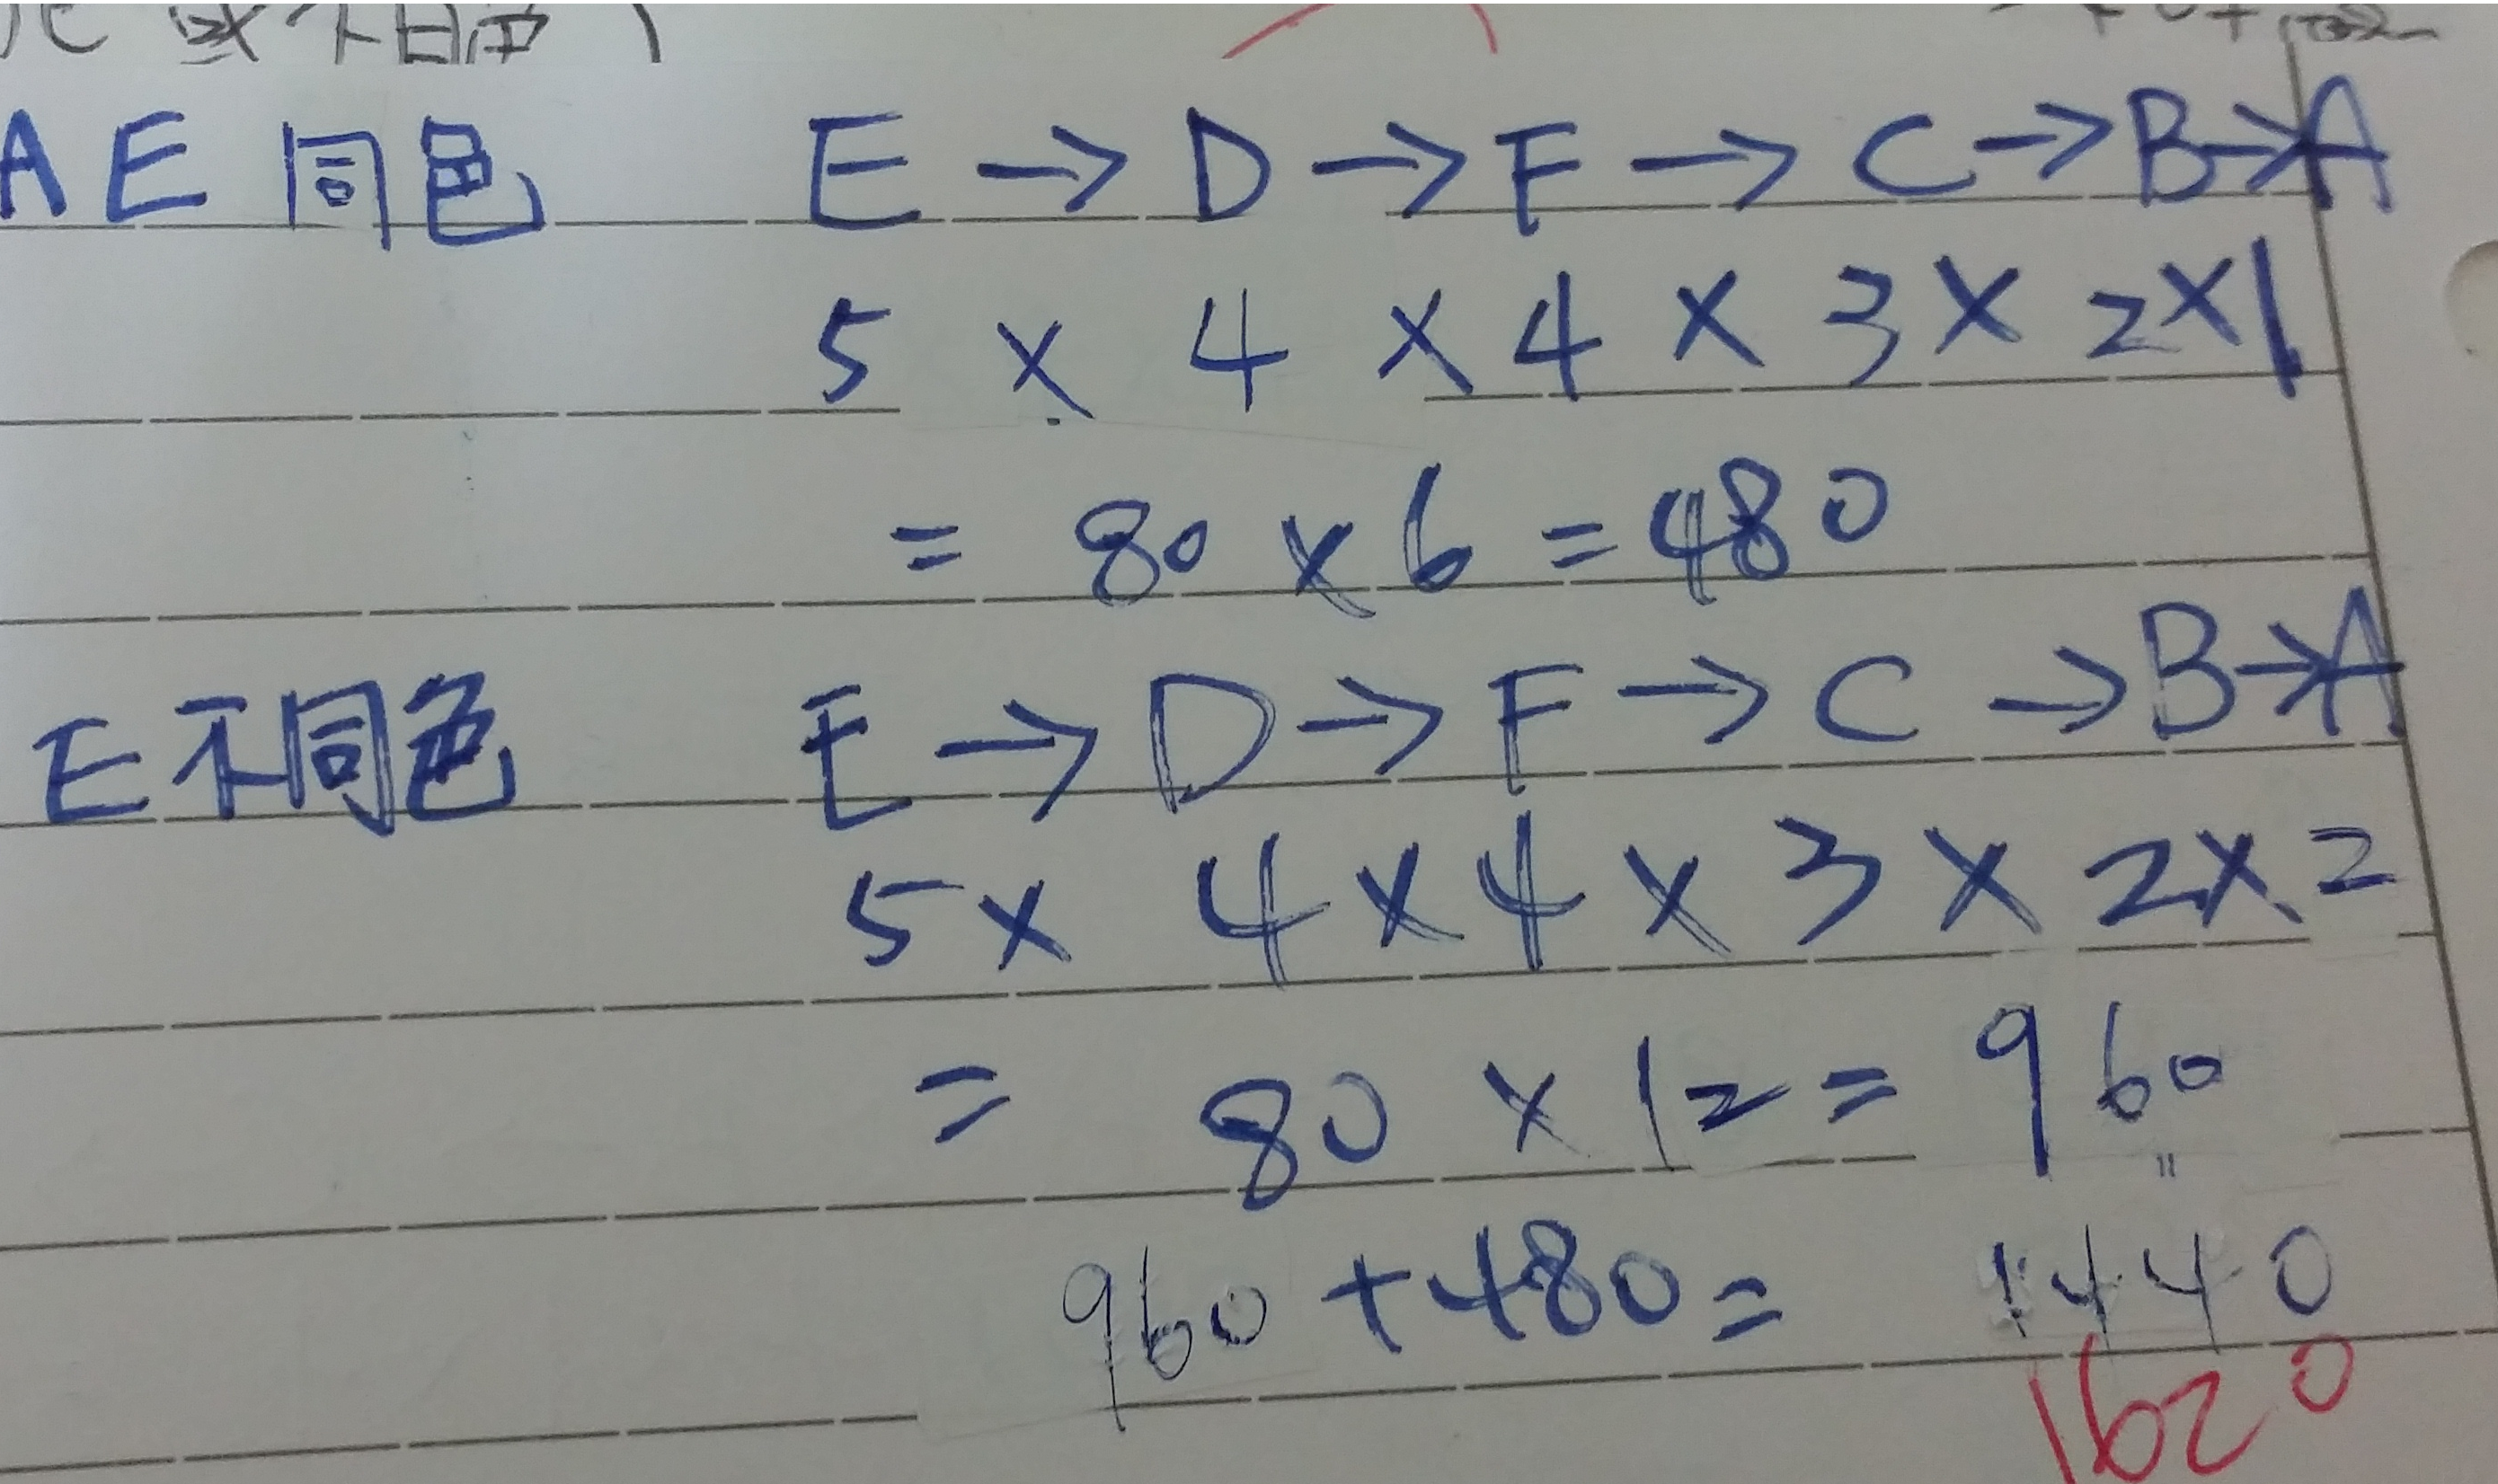 AE同色 E→D→F→C→B→A
5×4×4×3×2×1
=80×6=480
E不同色 E→D→F→C→B→A
5×4×4×3×2×2
=80×12=960
960+480= 1440
1620